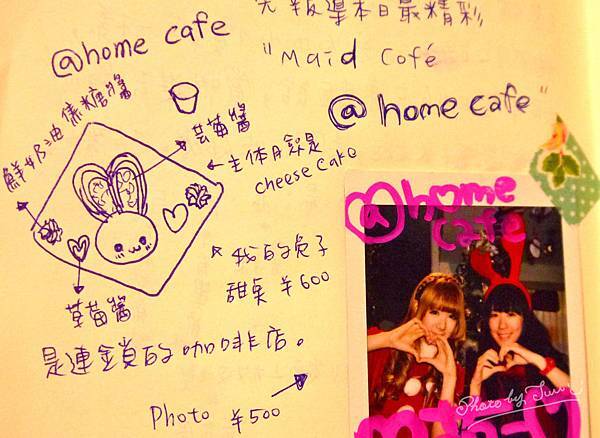 先報導本日最精彩
@home cafe
"Maid Café
@home cafe"
鮮奶油
焦糖醬
草莓醬
←主体月餘是
cheese cake
我的兔子
甜點 ¥600
草莓醬
是連鎖的咖啡店。
Photo ¥500
@home
cafe
Photo by